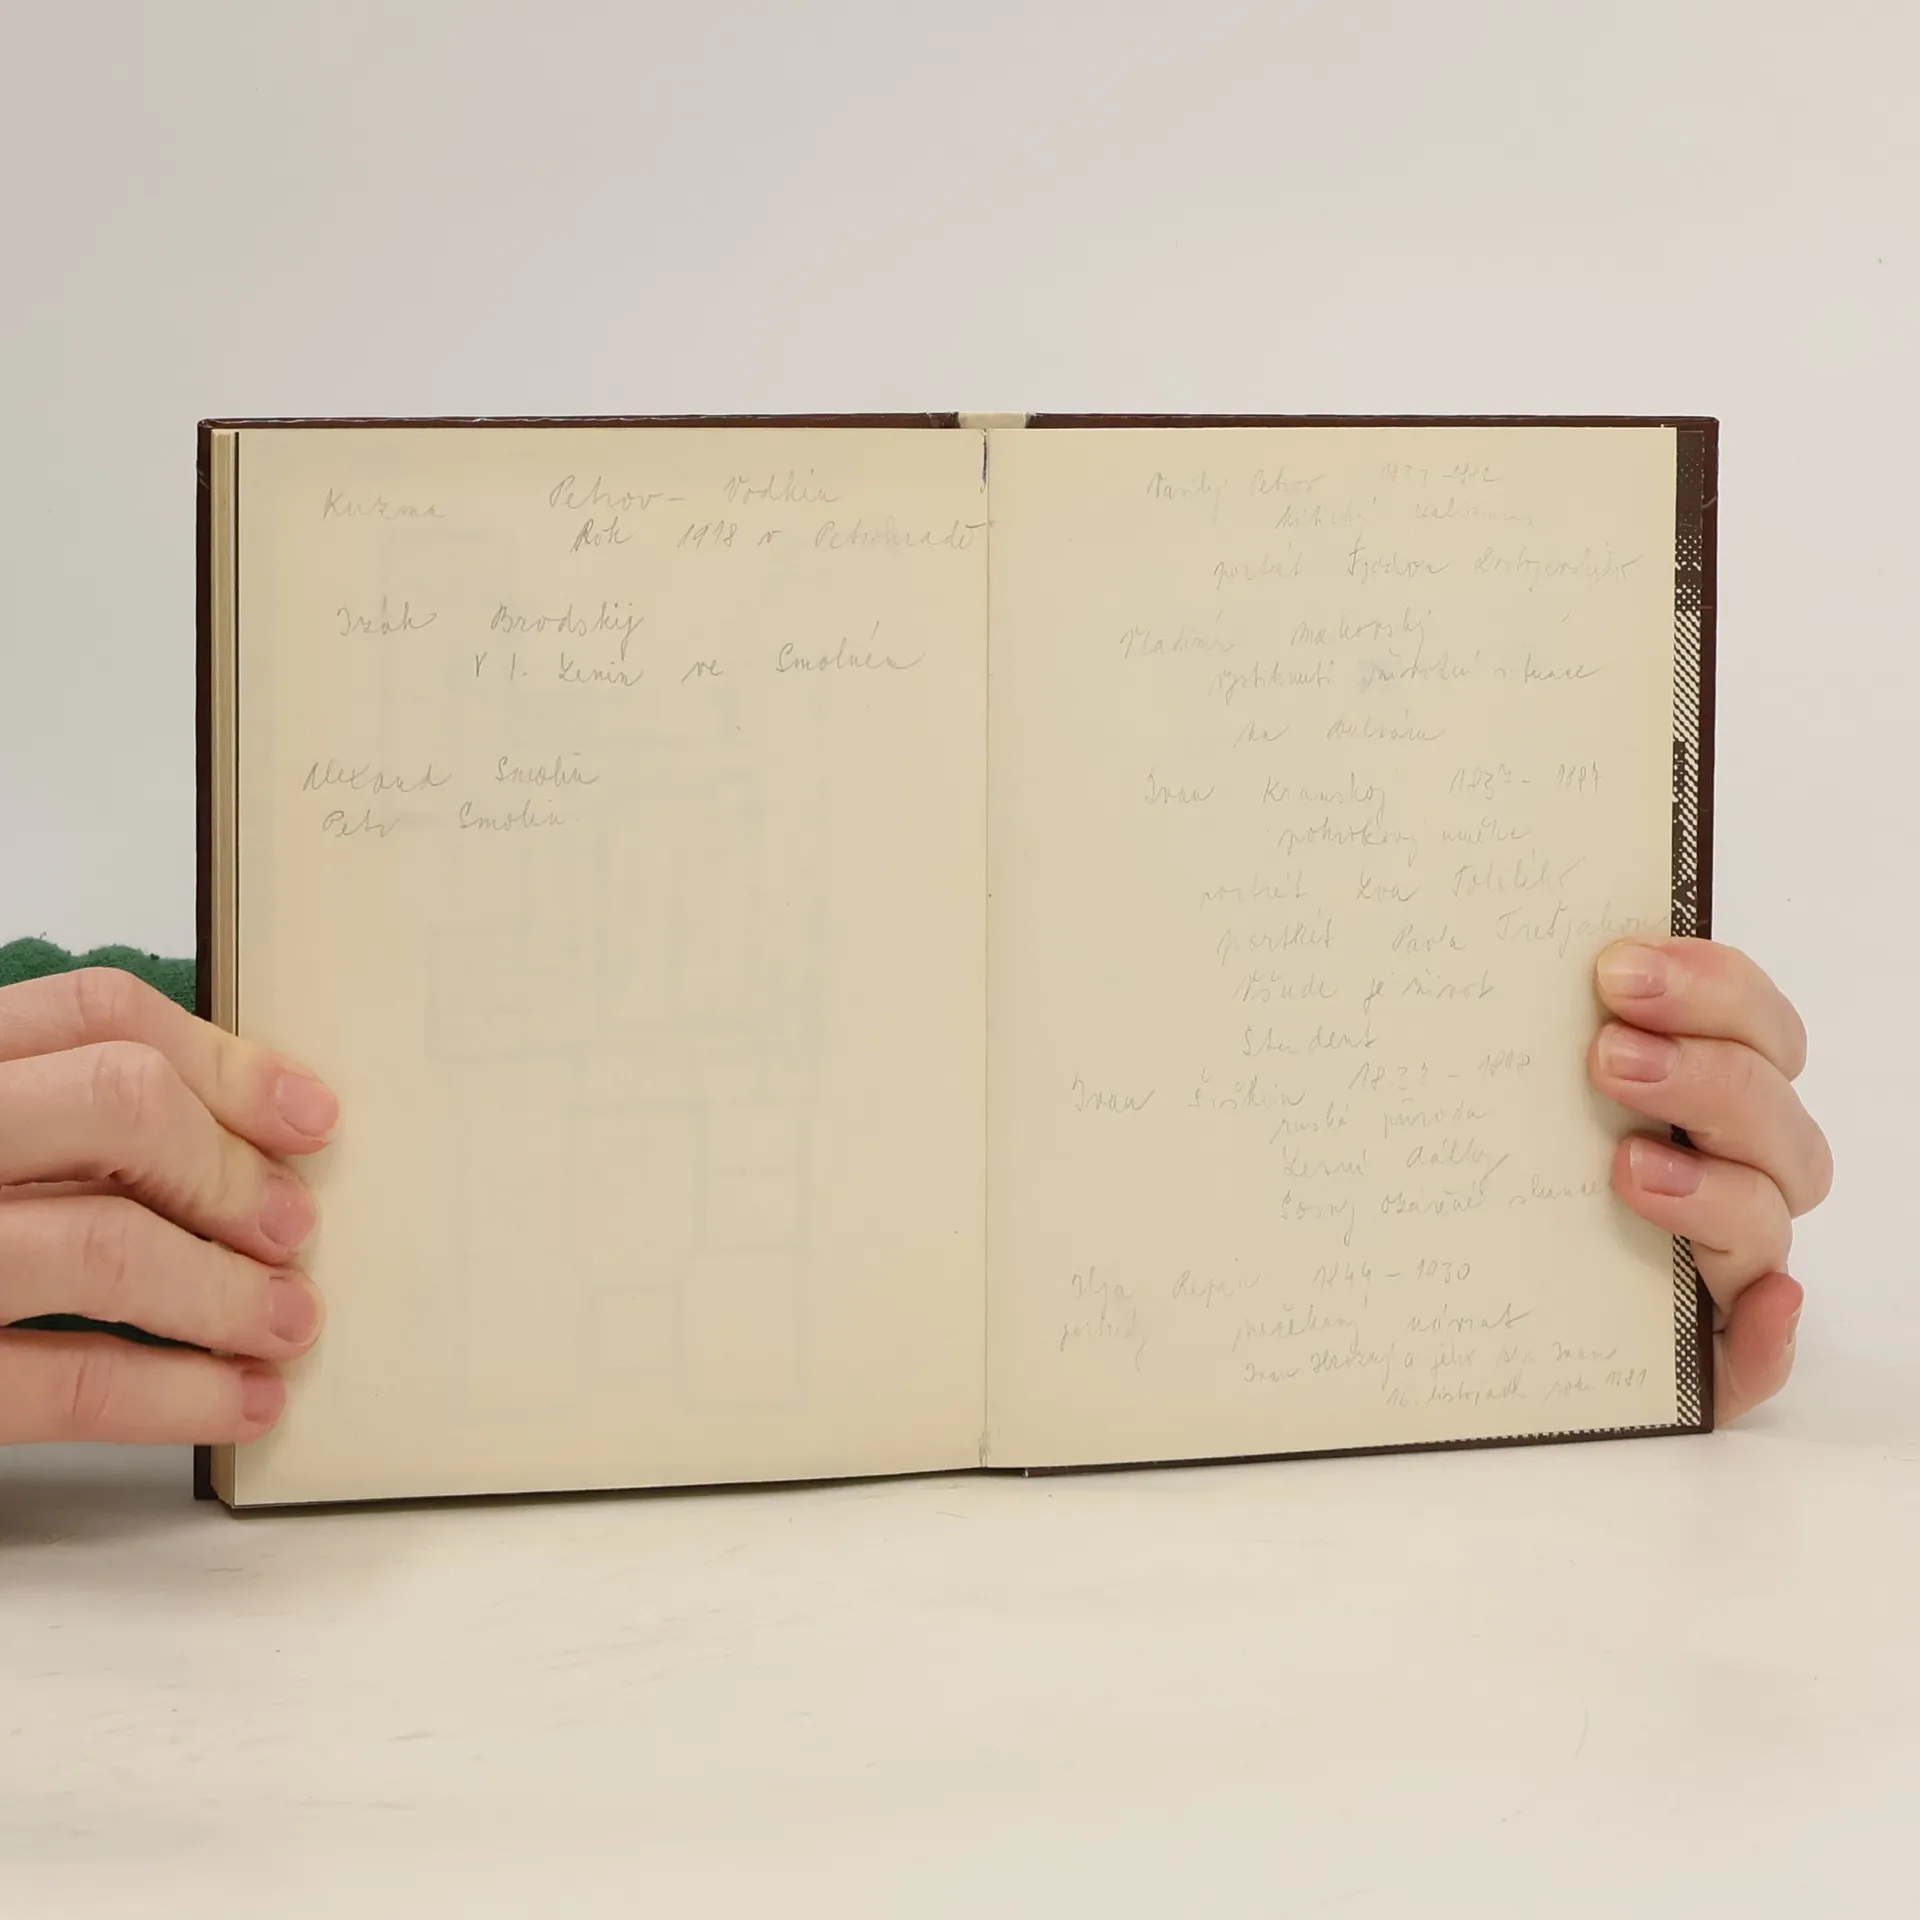 Kuzma Petrov - Vodkin
Rok 1918 v Petrohradě
Izák Brodskij
V I. Lenin ve Smolném
Alexand Smolin
Petr Smolin
Vasilij Petrov
kritický realismus
portrét Fjodora Dostojevského
Vladimír Makovský
vystihnutí životní situace
na bulváru
Ivan Kramskoj 1837 - 1887
pokrokový umělec
portrét Lva Tolstého
portrét Pavla Treťjakova
Všude je život
Student
Ivan Šiškin
ruská příroda
Lesní dálky
Sosny ozářené sluncem
Ilja Repin 1844 - 1930
portréty nečekaný návrat
Ivan Hrozný a jeho syn Ivan
16. listopadu roku 1581